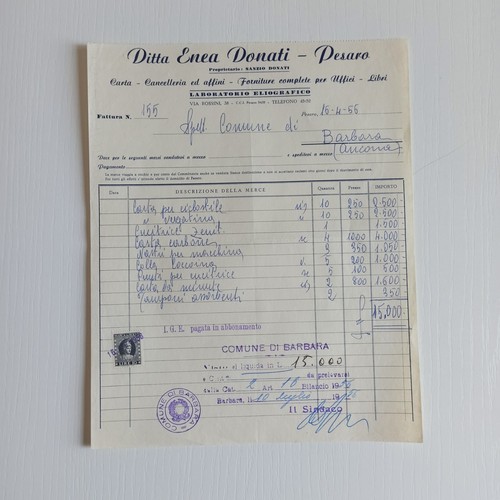 Ditta Enea Donati - Pesaro
Proprietario: SANZIO DONATI
Carta - Cancelleria ed affini - Forniture complete per Uffici - Libri
LABORATORIO ELIOGRAFICO
VIA ROSSINI, 38 - TELEFONO
Fattura N. 155 Pesaro, 15-4-56
Spett. Comune di
Barbara
(Ancona)
Dare per le seguenti merci vendutevi a mezzo e speditevi a mezzo
Pagamento
Data DESCRIZIONE DELLA MERCE Quantità Prezzo IMPORTO
Carta per ciclostile 10 250 2.500
" vergatina 10 250 2.500
Cucitrice Zenit 1 1.500
Carta carbone 4 1000 4.000
Nastri per macchina 3 350 1.050
Colla Coccoina 5 200 1.000
Punti per cucitrice 5 100 500
Carta da minute 2 800 1.600
Tamponi assorbenti 2 350
£ 15.000
I. G. E. pagata in abbonamento
COMUNE DI BARBARA
Visto si liquida in L. 15.000
da prelevarsi
sulla Cat. 2 Art 10 Bilancio 1956
Barbara, li 10 luglio 1956
Il Sindaco
COMUNE DI BARBARA